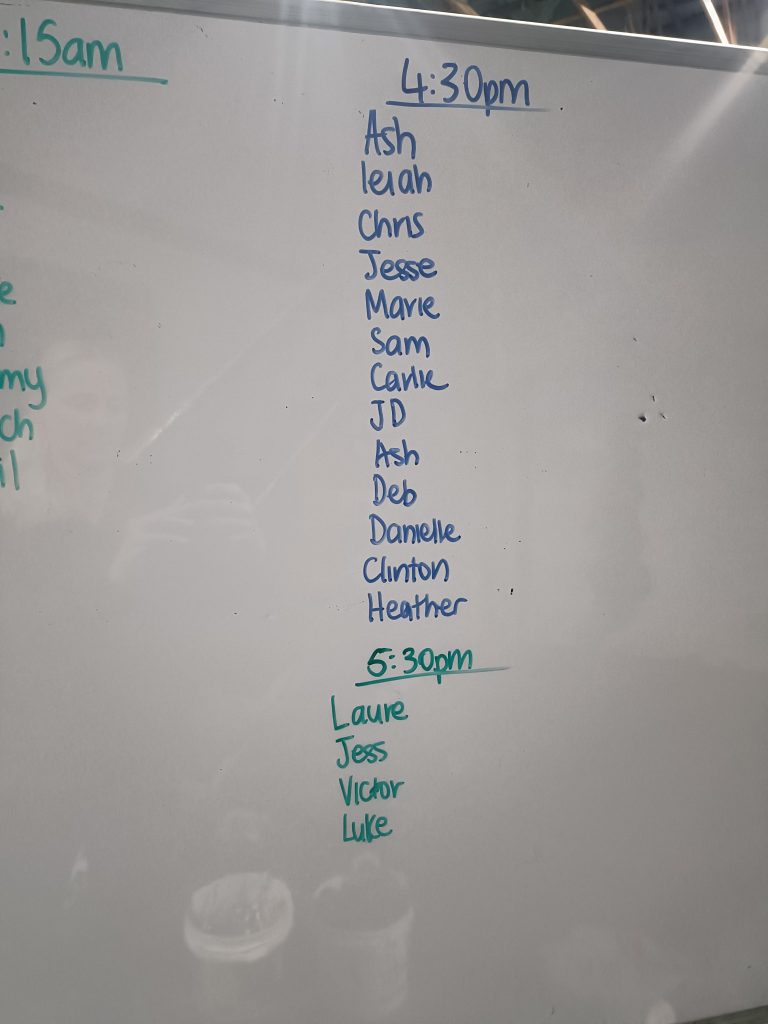 :15am
e
my
ch
il
4:30pm
Ash
leiah
Chris
Jesse
Marie
Sam
Carlie
JD
Ash
Deb
Danielle
Clinton
Heather
5:30pm
Laurie
Jess
Victor
Luke